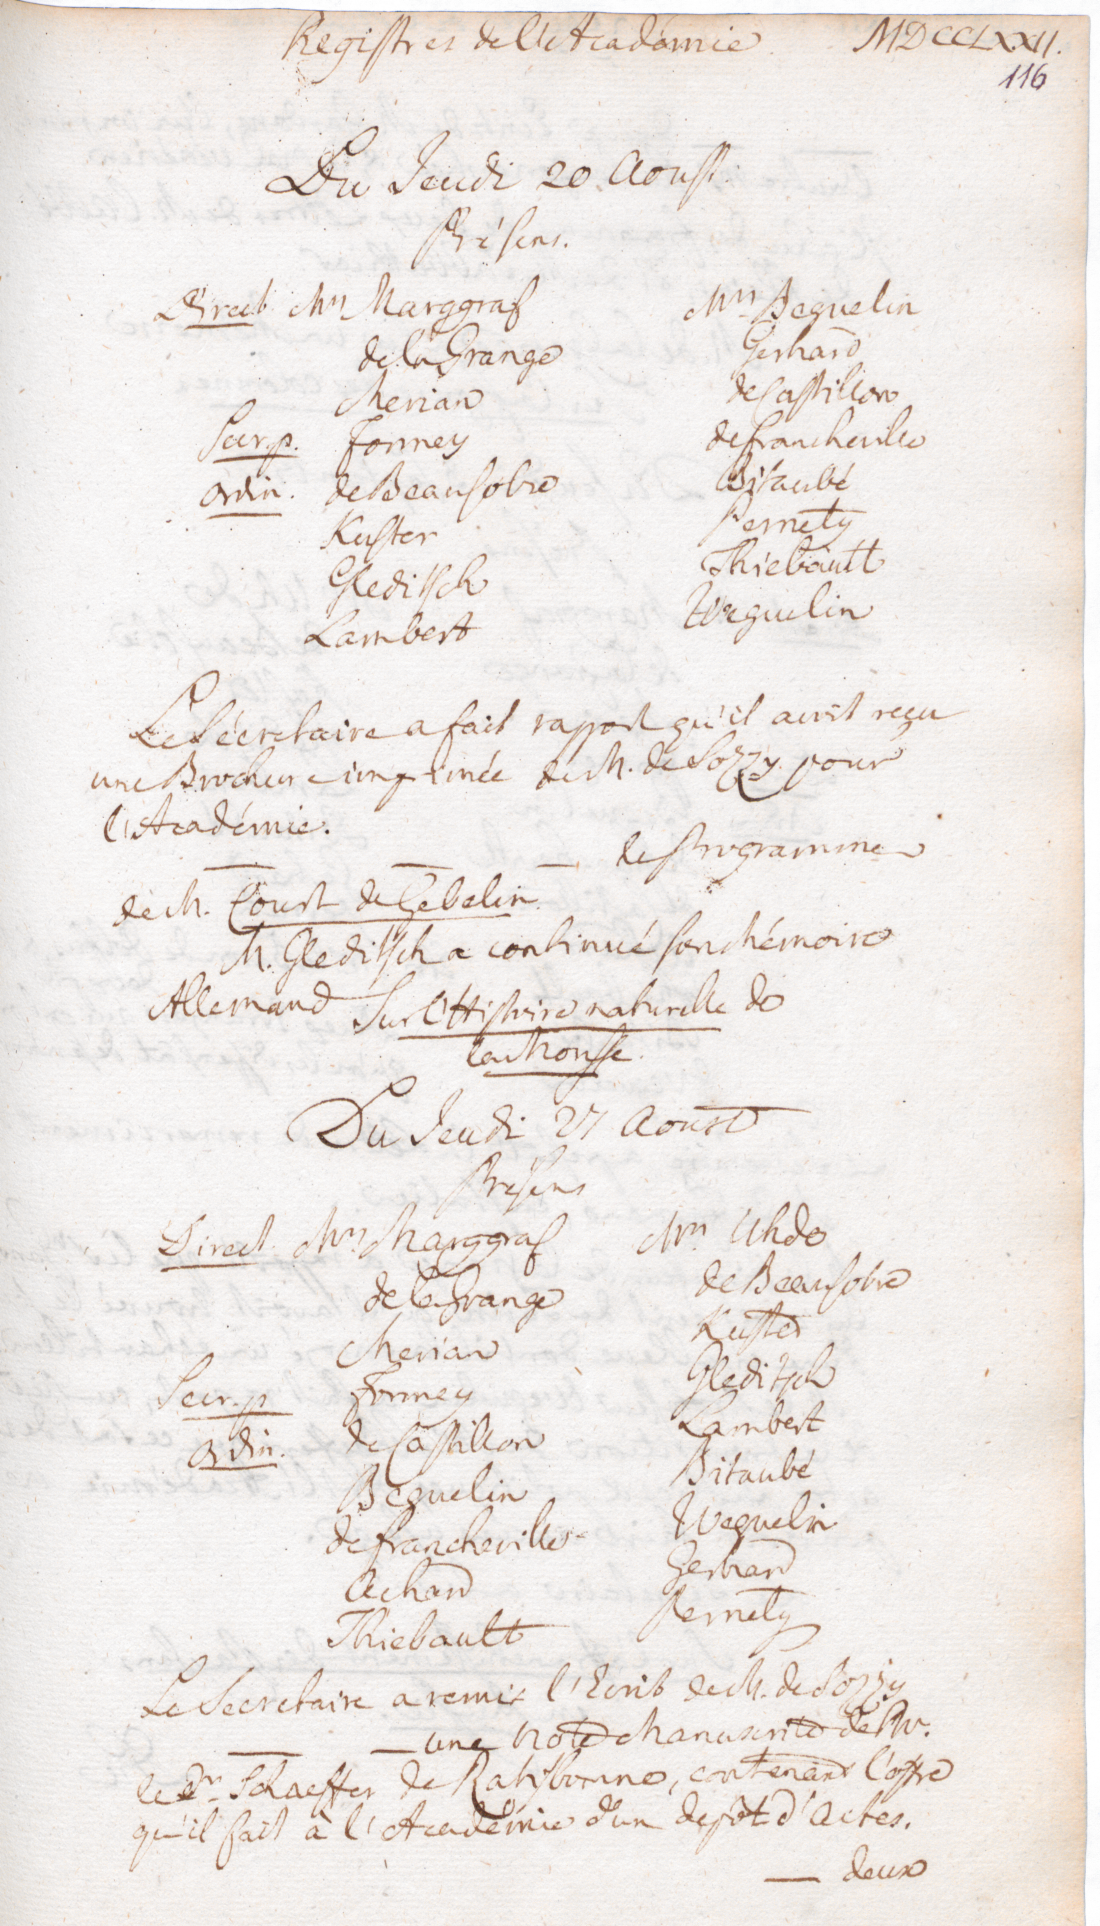 Registres de l'Académie MDCCLXXII.
116
Du Jeudi 20 Aoust
Présens.
Direct Mrs Marggraf
de la Grange
Merian
Secr. p. Formey
Ordin. de Beausobre
Kuster
Gleditsch
Lambert
Mrs Beguelin
Gerhard
de Castillon
de Francheville
Bitaubé
Pernety
Thiebault
Weguelin
Le Sécretaire a fait rapport qu'il avoit reçu
une Brochure imprimée de M. de Sozzy pour
l'Académie.
— — — le Programme
de M. Court de Gebelin.
M. Gleditsch a continué son Mémoire
Allemand Sur l'Histoire naturelle de
la Mousse.
Du Jeudi 27 Aoust
Présens
Direct Mrs Marggraf
de la Grange
Merian
Secr. p. Formey
Ordin. de Castillon
Beguelin
de Francheville
Achard
Thiebault
Mrs Uhde
de Beausobre
Kuster
Gleditsch
Lambert
Bitaubé
Weguelin
Gerhard
Pernety
Le Secretaire a remis l'Ecrit de M. de Sozzy
— — une Note Manuscrite de Mr.
le Dr. Schaeffer de Ratisbonne, contenant l'offre
qu'il fait à l'Académie d'un depôt d'Actes.
— deux